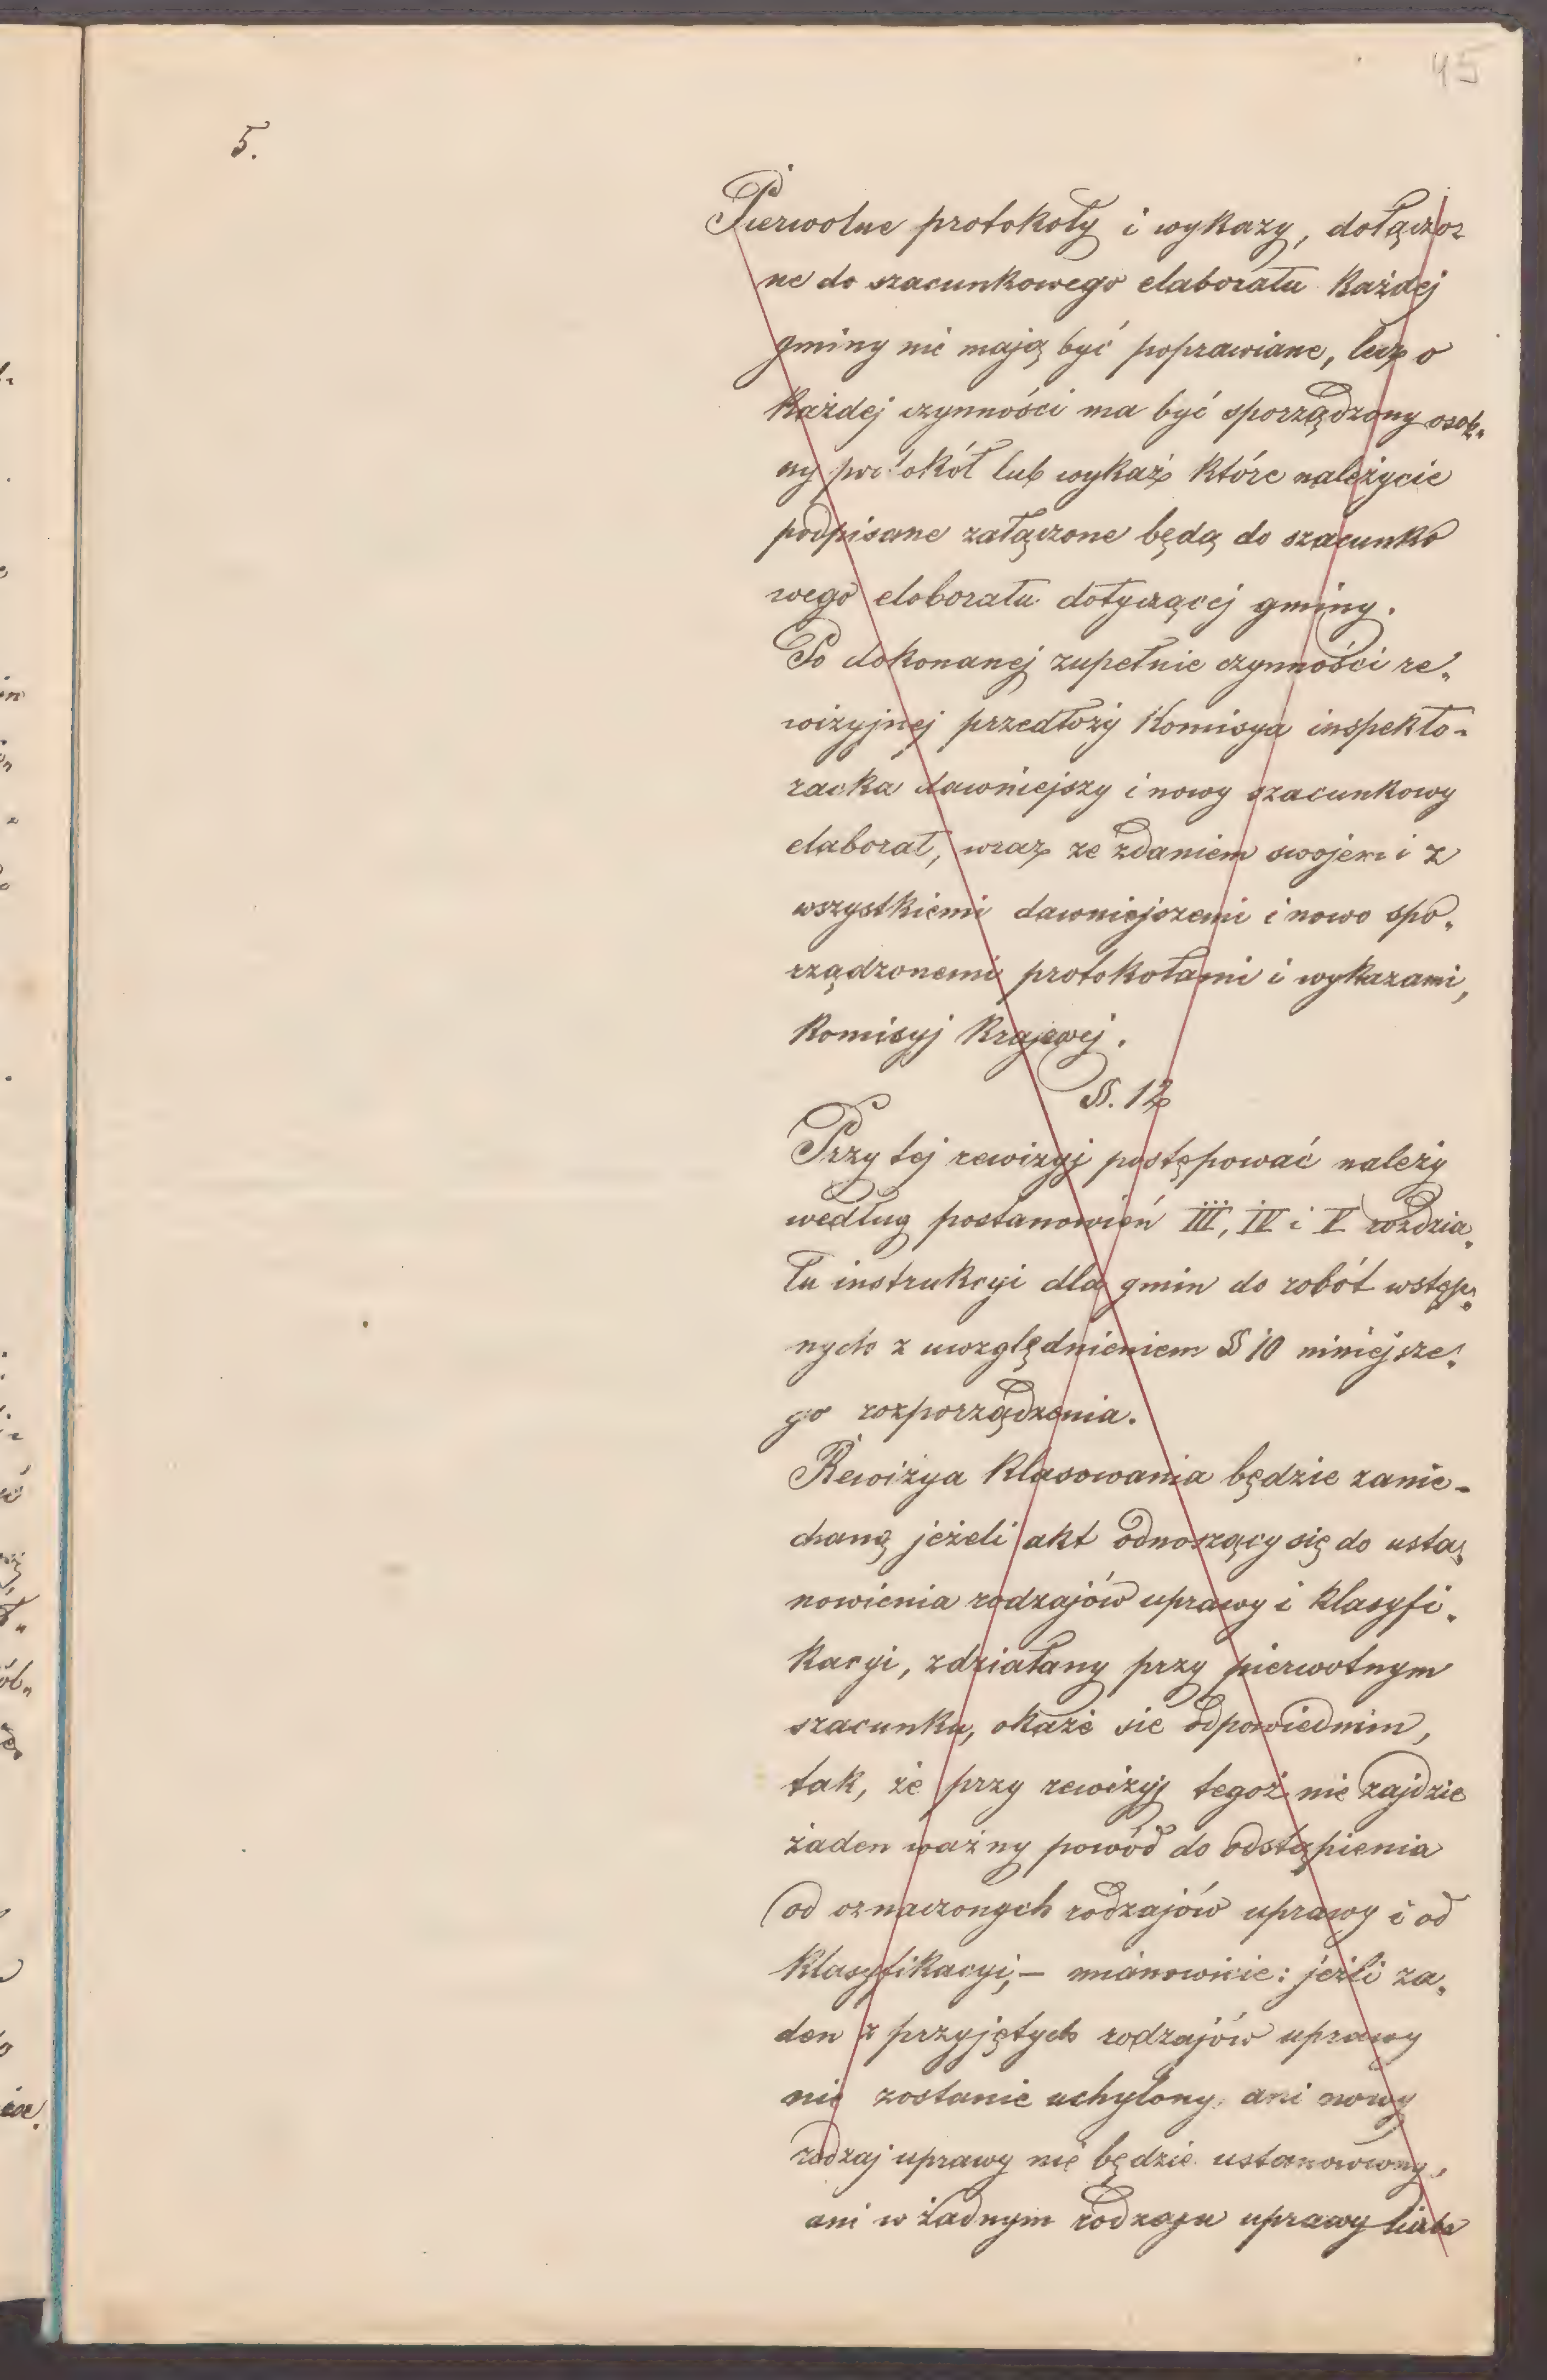 45
5.
Pierwotne protokoły i wykazy, dołączo-
ne do szacunkowego elaboratu każdej
gminy nie mają być poprawiane, lecz o
każdej czynności ma być sporządzony osob„
ny protokół lub wykaz które należycie
podpisane załączone będą do szacunko
wego eloboratu dotyczącej gminy.
Po dokonanej zupełnie czynności re„
wizyjnej przedłoży Komisya inspekto-
racka dawniejszy i nowy szacunkowy
elaborat, wraz ze zdaniem swojem i z
wszystkiemi dawniejszemi i nowo spo„
rządzonemi protokołami i wykazami,
Komisyj Krajowej.
§. 12
Przy tej rewizyj postępować należy
według postanowień III, IV i V rozdzia„
łu instrukcyi dla gmin do robót wstęp„
nych z uwzględnieniem § 10 niniejsze„
go rozporządzenia.
Rewizya klasowania będzie zanie-
chaną jeżeli akt odnoszący się do usta„
nowienia rodzajów uprawy i klasyfi„
kacyi, zdziałany przy pierwotnym
szacunku, okaże sie odpowiednim,
tak, że przy rewizyj tegoż nie zajdzie
żaden ważny powód do odstąpienia
od oznaczonych rodzajów uprawy i od
klasyfikacyi,- mianowicie: jeżli ża„
den z przyjętych rodzajów uprawy
nie zostanie uchylony, ani nowy
rodzaj uprawy nie będzie ustanowiony,
ani w żadnym rodzaju uprawy liczba